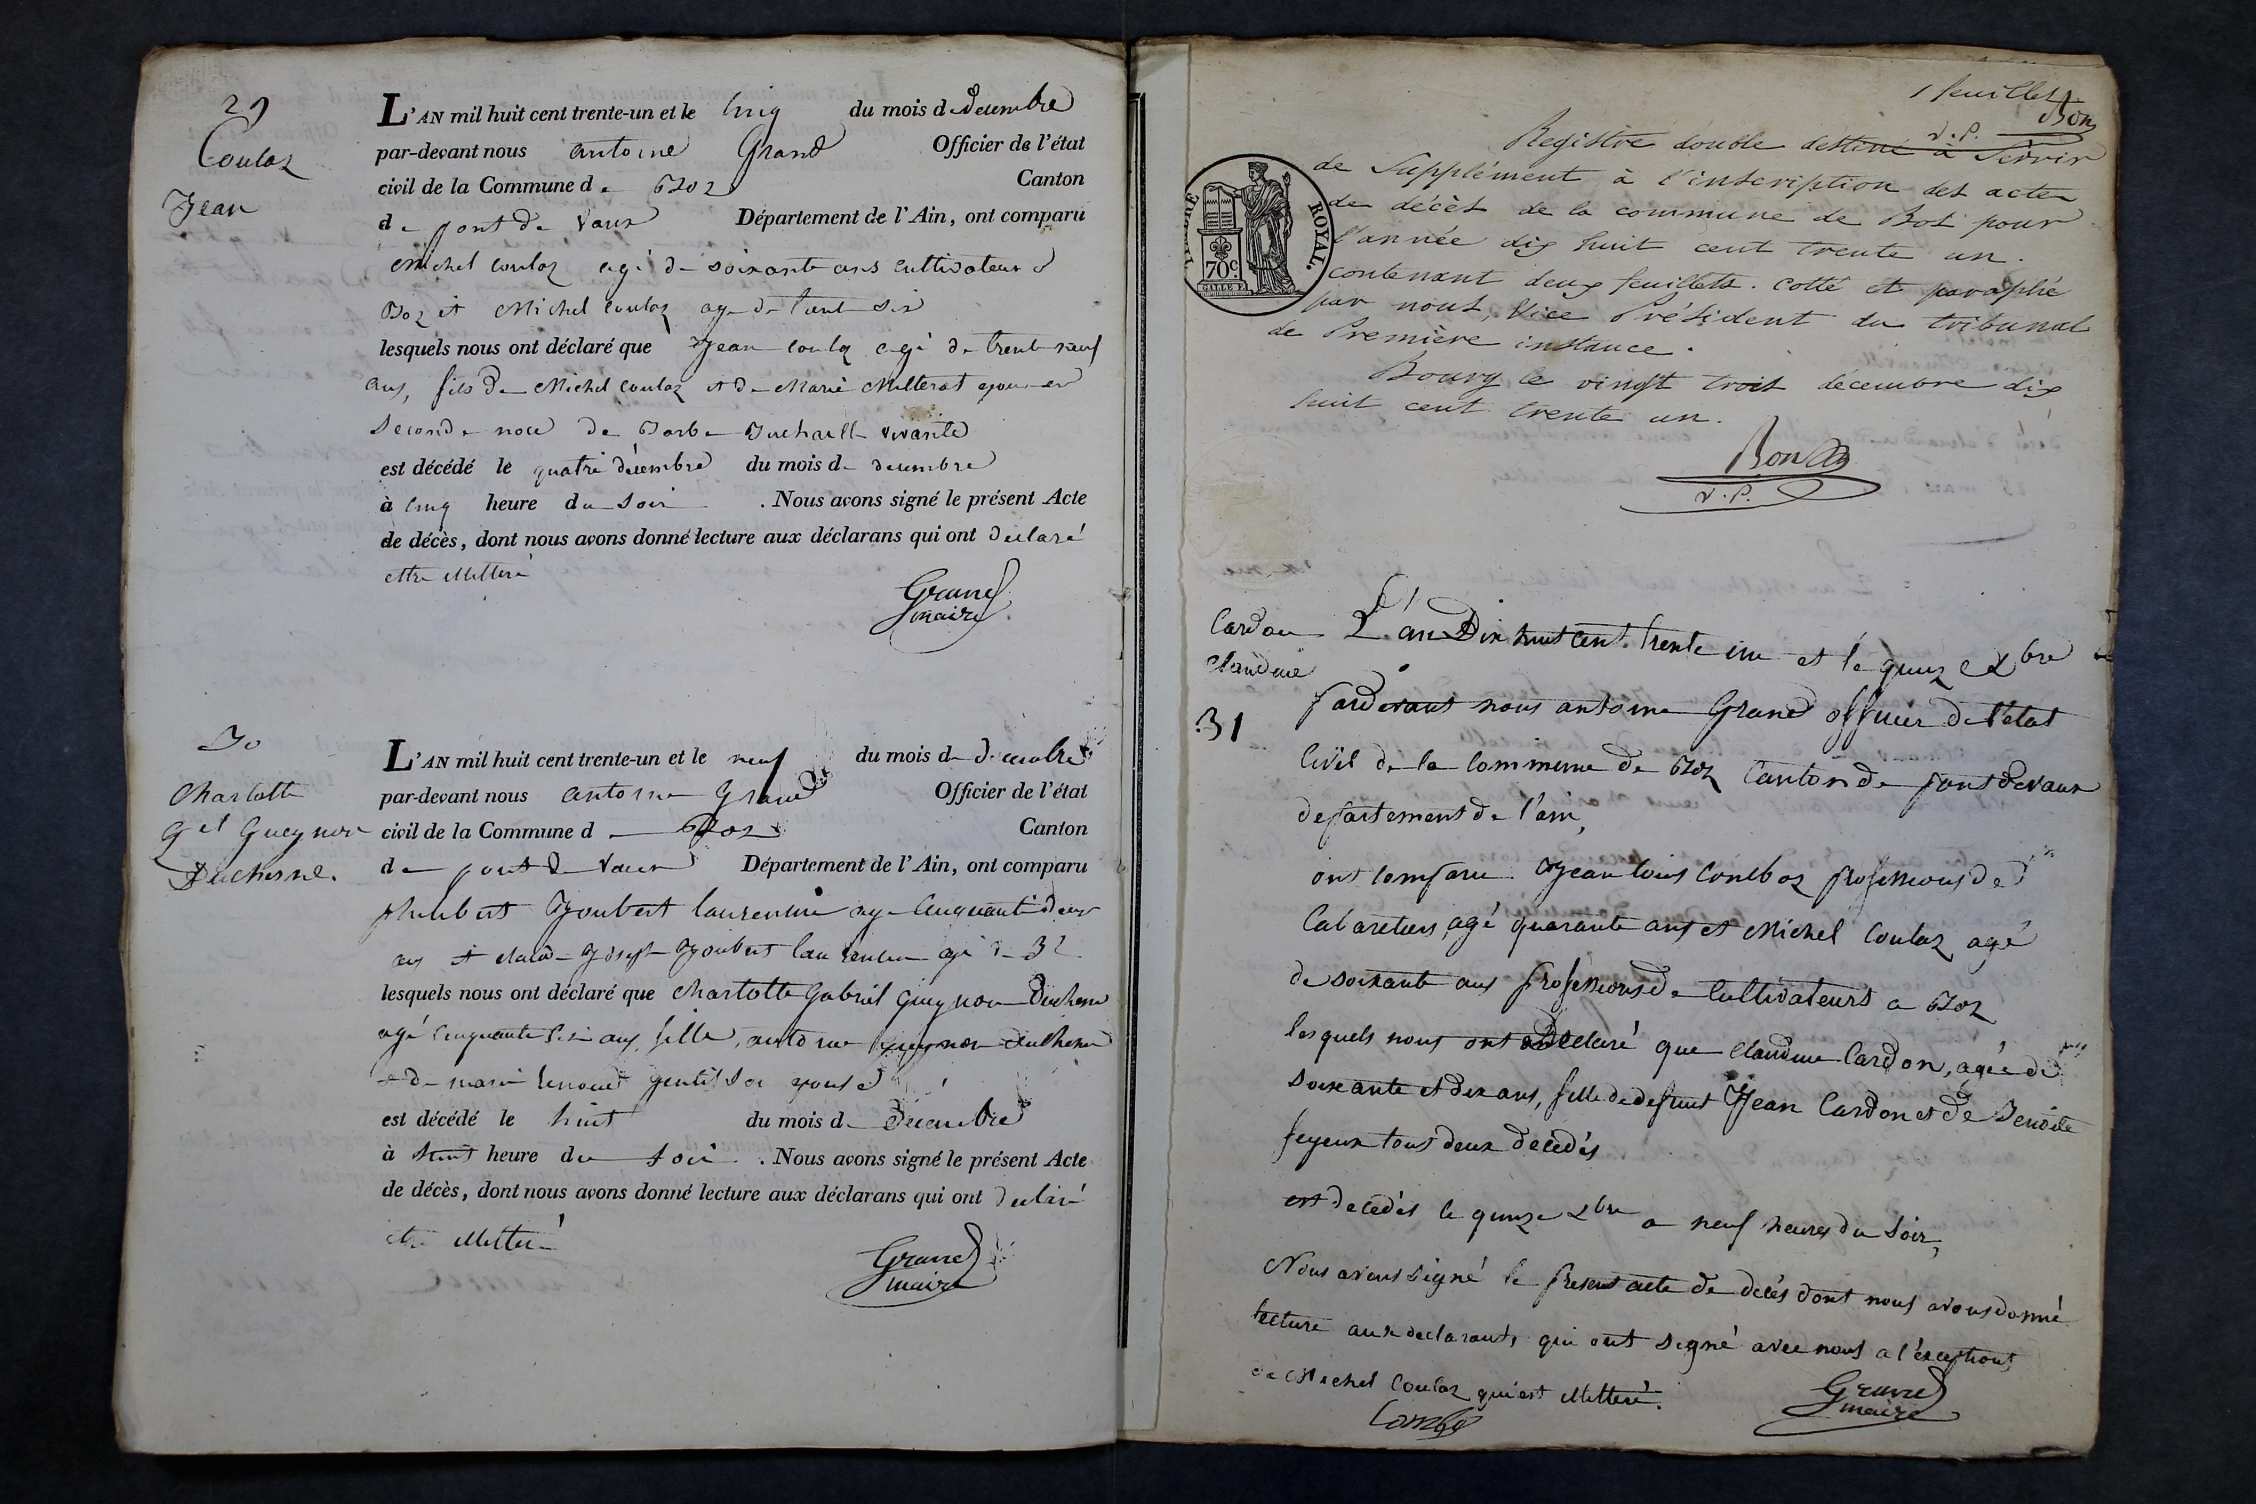 29
Coulaz
Jean
L'AN mil huit cent trente-un et le cinq du mois de decembre
par-devant nous antoine Grand Officier de l'état
civil de la Commune de Boz Canton
de pont de Vaux Département de l'Ain, ont comparu
Michel coulaz agé de soixante ans cultivateur a
Boz et Michel coulaz age de trent six
lesquels nous ont déclaré que Jean coulaz agé de trente neuf
ans, fils de Michel coulaz et de Marie Milleret epoux en
seconde noce de Barbe vivante
est décédé le quatre décembre du mois de decembre
à cinq heure du soir . Nous avons signé le présent Acte
de décès, dont nous avons donné lecture aux déclarans qui ont declaré
etre illiteré
Grand
maire
30
Charlotte
Gel Gueynon
Duchesne.
L'AN mil huit cent trente-un et le neuf du mois de decembre
par-devant nous antoine Grand Officier de l'état
civil de la Commune de Boz Canton
de pont de Vaux Département de l'Ain, ont comparu
philibert Joubert laurencin age cinquante deux
ans et claude Joseph Joubert laurencin agé de 32
lesquels nous ont déclaré que charlotte Gabriel gueynon Duchene
agé cinquante six ans, fille, antoine gueynon duchene
et de marie
est décédé le huit du mois de Decembre
à huit heure du soir . Nous avons signé le présent Acte
de décès, dont nous avons donné lecture aux déclarans qui ont declaré
etre illiteré
Grand
maire
1 feuillet
Bon
V. P.
Registre double destiné à Servir
de Supplément à l'inscription des actes
de décès de la commune de Bos pour
l'année dix huit cent trente un.
contenant deux feuillets. cotté et paraphé
par nous, Vice Président du tribunal
de Première instance.
Bourg le vingt trois décembre dix
huit cent trente un.
Bon
V. P.
TIMBRE ROYAL.
70c.
Cardon
Claudine
31
L'an Dix huit cent trente un et le quinze Xbre
pardevant nous antoine Grand officier de l'état
Civil de la Commune de Boz Canton de pont de vaux
departement de l'ain,
ont comparu Jean louis Combaz professions de
Cabaretiers, agé quarante ans et Michel Coulaz agé
de soixante ans professions de Cultivateurs a Boz
lesquels nous ont Declaré que Claudine Cardon, agée de
soixante et dix ans, fille de defunt Jean Cardon et de Benoite
feyeux tous deux décedés
est decedés le quinze Xbre a neuf heures du soir,
Nous avons signé le present acte de decès dont nous avons donné
lecture aux declarants qui ont signé avec nous a l'exceptions
de Michel Coulaz qui est illiteré.
Grand
maire